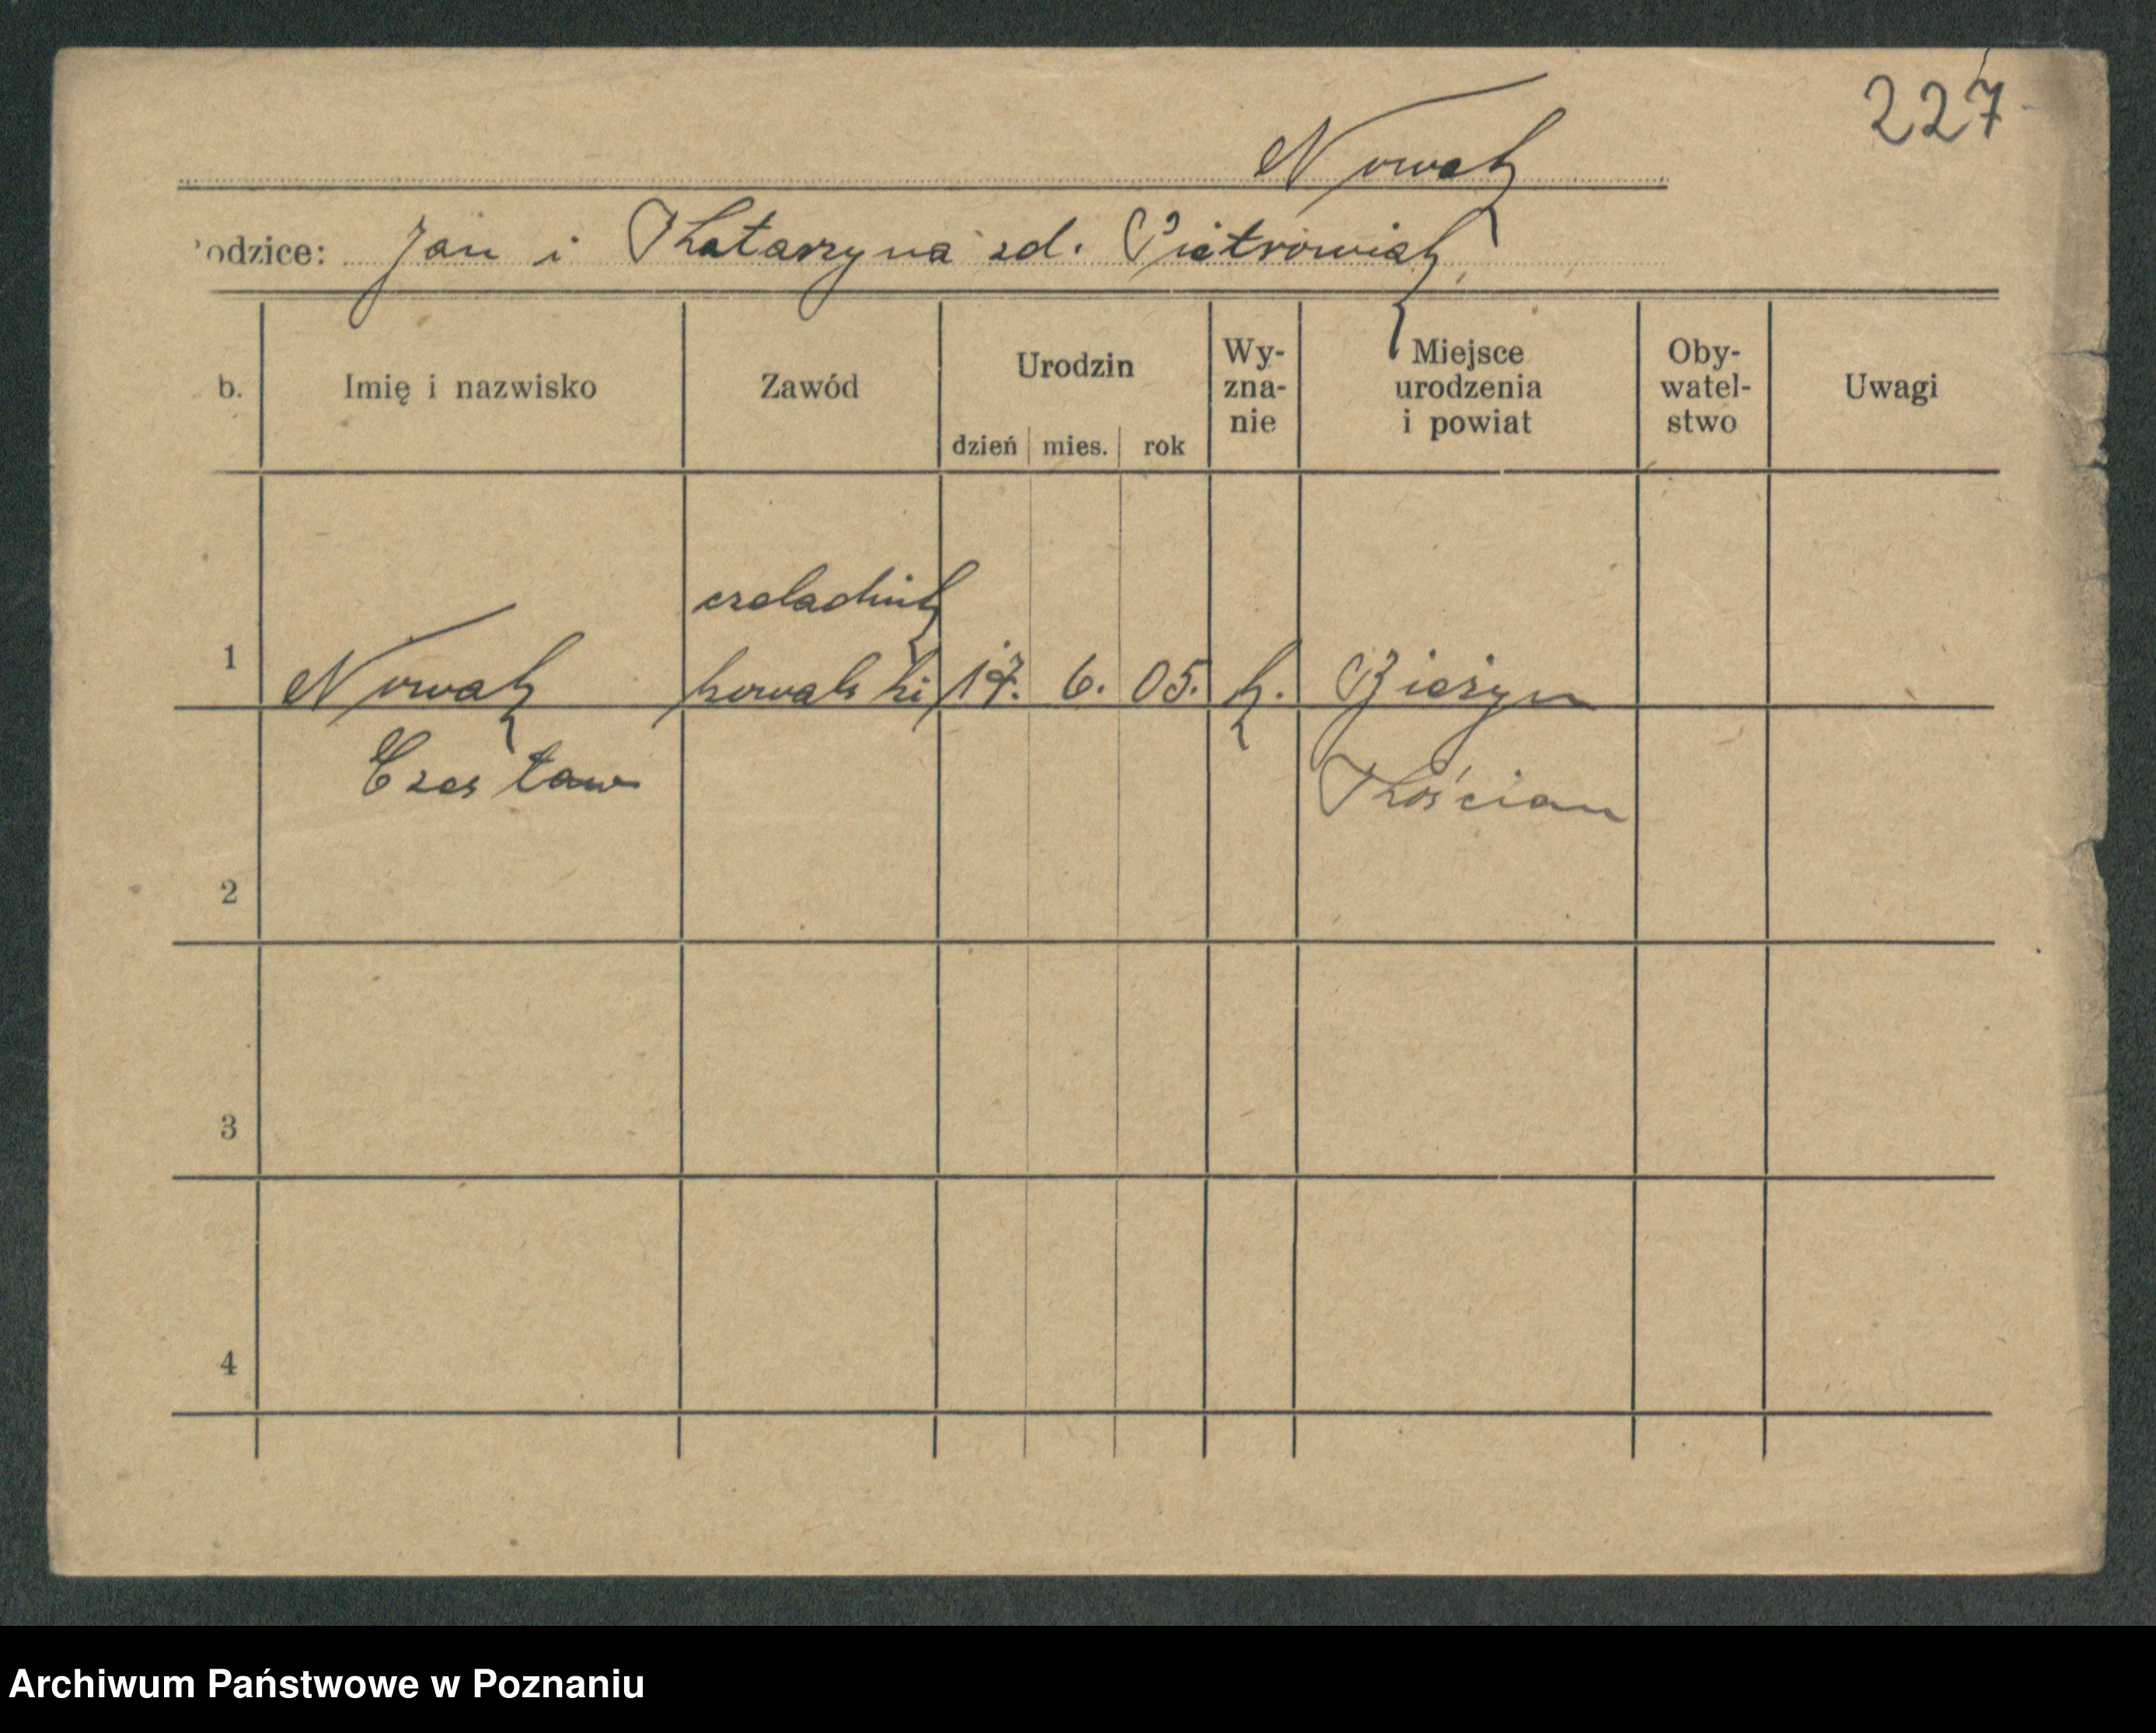 227
Nowak
odzice: Jan i Katarzyna zd. Pietrowiak
b. Imię i nazwisko Zawód Urodzin dzień mies. rok Wy-zna-nie Miejsce urodzenia i powiat Oby-watel-stwo Uwagi
czeladnik
1 Nowak kowalski 17. 6. 05. k. Bieżyn
Czesław Kościan
2
3
4
Archiwum Państwowe w Poznaniu